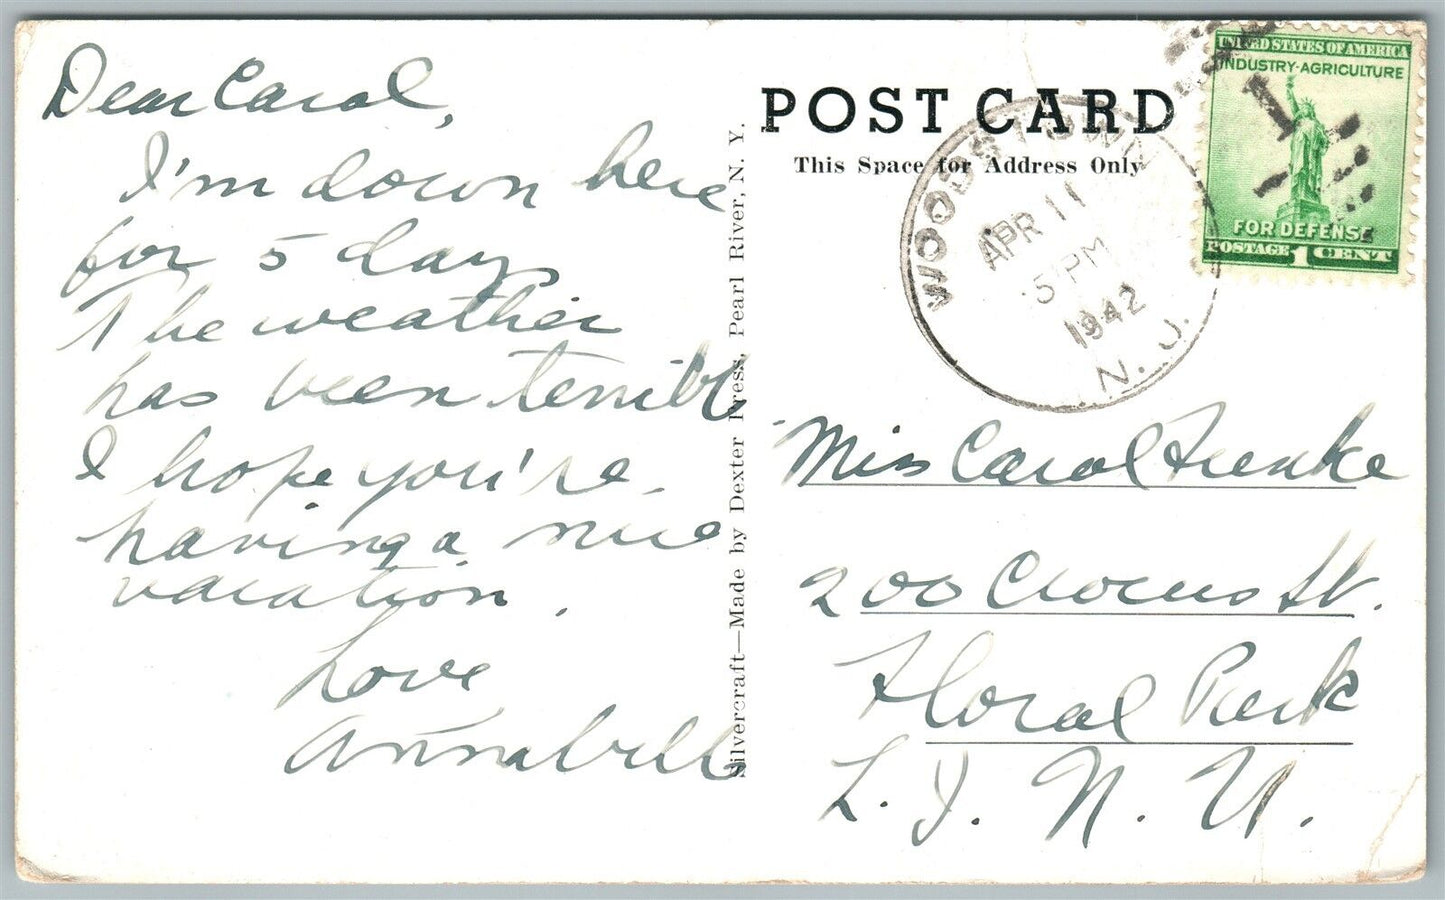 Dear Carol,
I'm down here
for 5 days
The weather
has been terrible
I hope you're
having a nice
vacation.
Love
Annabelle
Silvercraft—Made by Dexter Press, Pearl River, N. Y.
POST CARD
This Space for Address Only
WOODSTOWN
APR 11
5 PM
1942
N. J.
UNITED STATES OF AMERICA
INDUSTRY-AGRICULTURE
FOR DEFENSE
POSTAGE 1 CENT
Miss Carol Frenke
200 Crocus St.
Floral Park
L. I. N. Y.